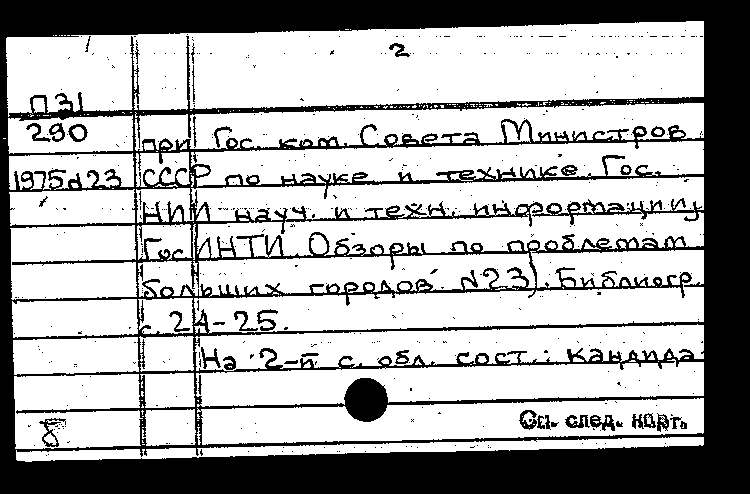 2
П31
290
1975 N23
при Гос. ком. Совета Министров
СССР по науке и технике. Гос.
НИИ науч. и техн. информации,
ГосИНТИ. Обзоры по проблемам
больших городов. N23). Библиогр.
с. 24-25.
На 2-й с. обл. сост.: кандида
8
См. след. карт.